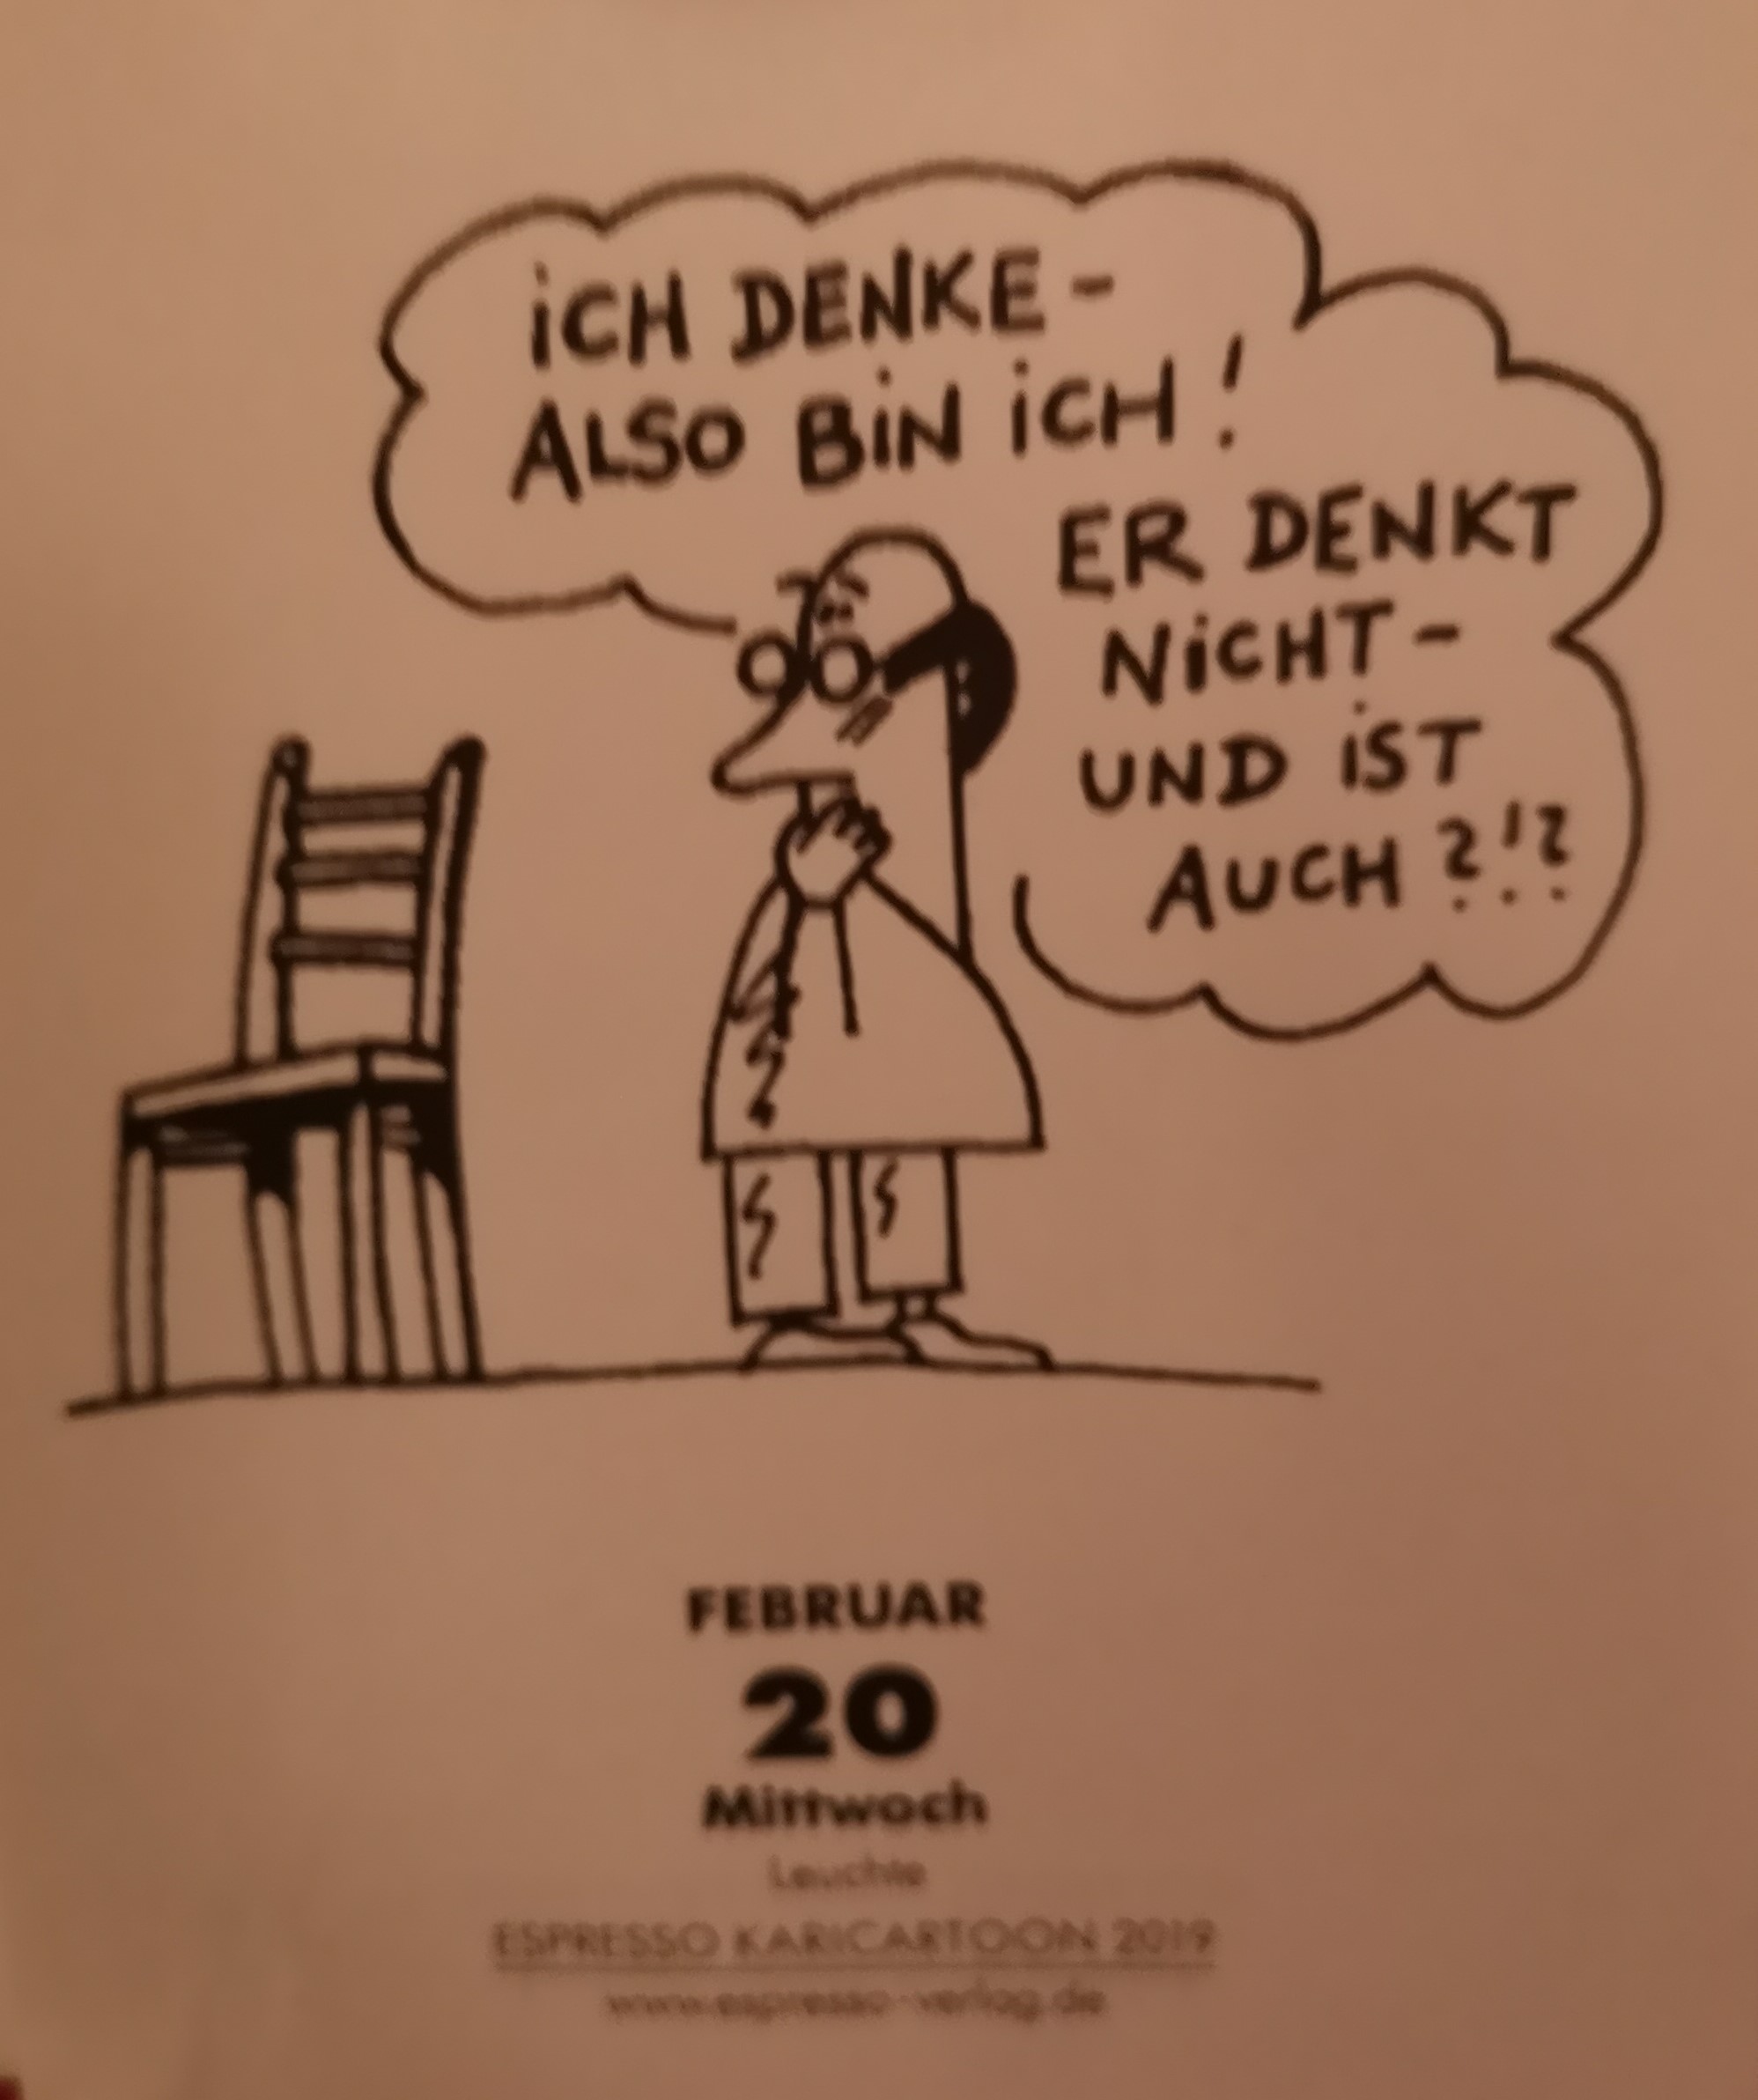 iCH DENKE -
ALSO BiN iCH !
ER DENKT
NiCHT -
UND iST
AUCH ?!?
FEBRUAR
20
Mittwoch
Leuchte
ESPRESSO KARICARTOON 2019
www.espresso-verlag.de